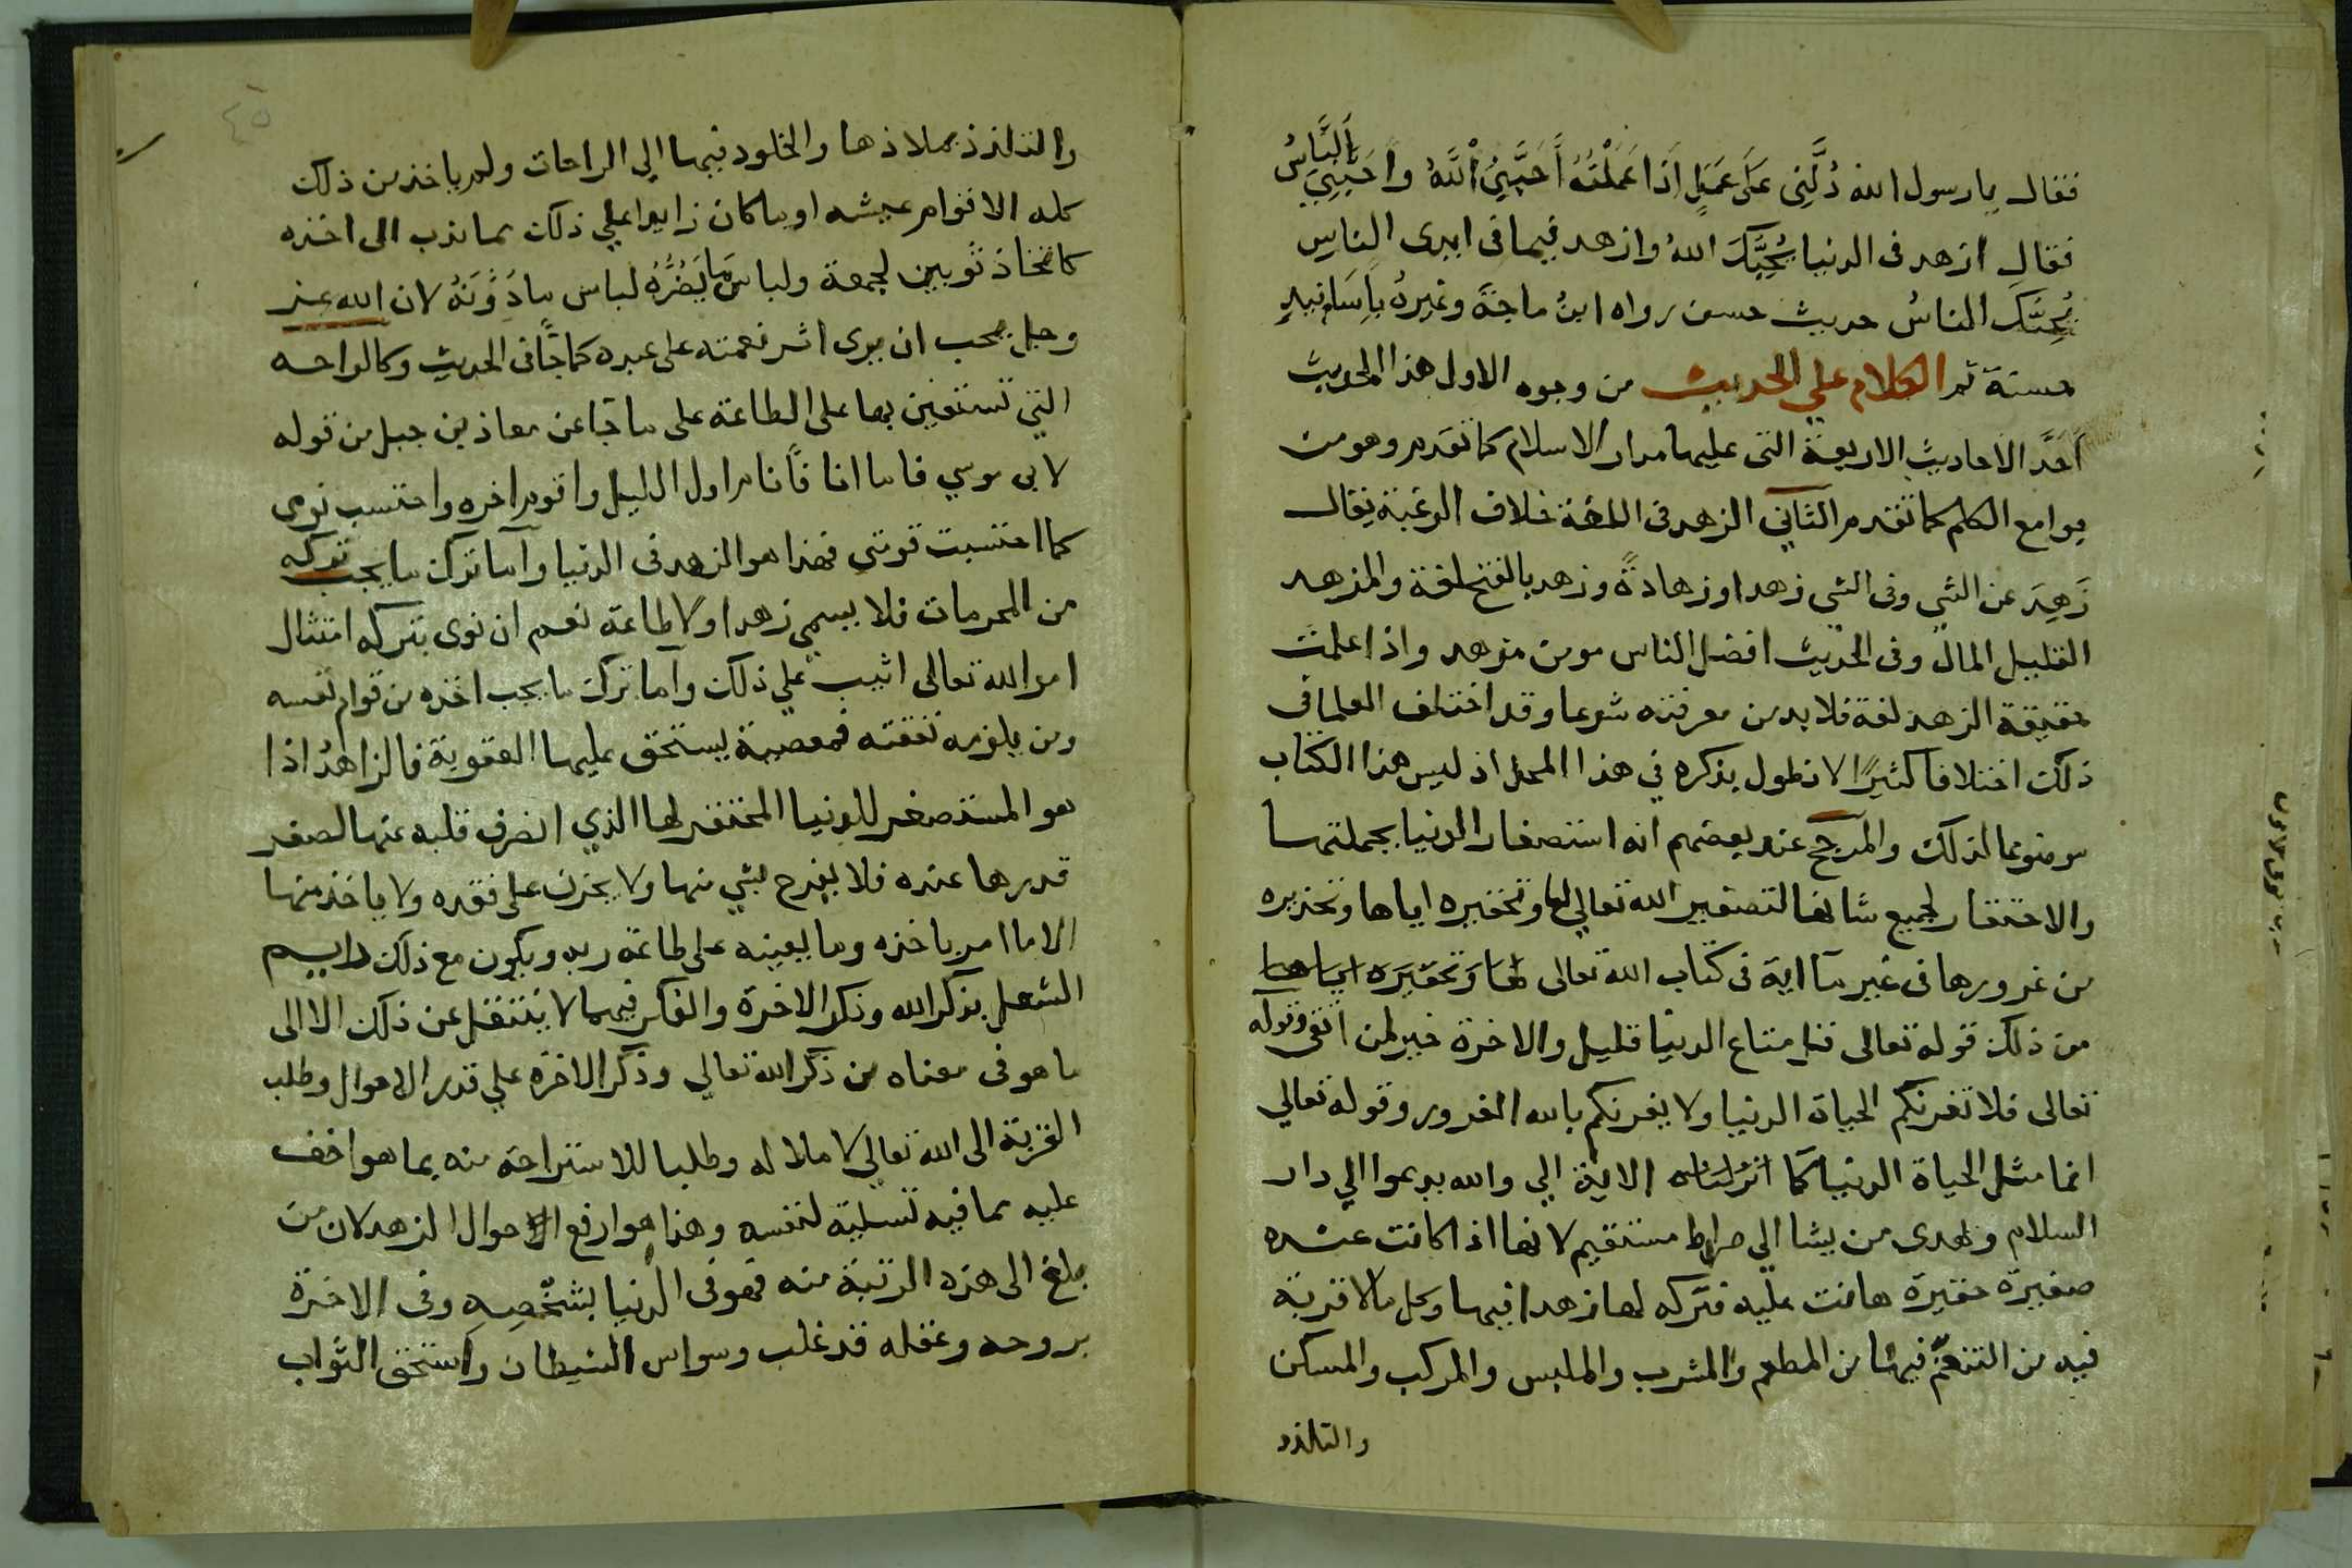 فقال يا رسول الله دُلَّنِى عَلَى عَمَلٍ اِذَا عَمَلْتُهُ أَحَبَّنِيْ اللَّهُ وَاَحَبَّنِيْ النَّاسُ
فقال ازهد فى الدنيا يُحِبَّكَ اللهُ وازهد فيما فى ايدى الناسِ
يُحِبَّكَ الناسُ حديث حسن رواه ابنُ ماجة وغيرهُ بِاَسَانيدٍ
حسنة ثم الكلام علي الحديث من وجوه الاول هذا الحديث
أَحَدُ الاحاديث الاربعة التى عليها مدار الاسلام كما تقدم وهو من
جوامع الكلم كما تقدم الثاني الزهد فى اللغة خلاف الرغبة يقال
زَهِدَ عن الشي وفى الشي زهدا وزهادةً وزهد بالفتح لغة والمزهد
القليل المال وفى الحديث افضل الناس مومن مزهد واذا علمت
حقيقة الزهد لغة فلا بد من معرفته شرعا وقد اختلف العلما فى
ذلك اختلافا كثيرًا لا نطول بذكره في هذا المحل اذ ليس هذا الكتاب
موضوعا لذلك والمرجح عند بعضهم انه استصغار الدنيا بجملتها
والاحتقار لجميع شانها لتصغير الله تعالي لها وتحقيره اياها وتحذيره
من غرورها فى غير ما اية فى كتاب الله تعالى لها وَتحقيَره اياها
من ذلك قوله تعالى قل متاع الدنيا قليل والاخرة خير لمن اتقى وقوله
تعالى فلا تغرنكم الحياة الدنيا ولا يغرنكم بالله الغرور وقوله تعالي
انما مثل الحياة الدنيا كما انزلناه الاية الي والله يدعوا الي دار
السلام ويهدى من يشا الي صراط مستقيم لانها اذا كانت عنده
صغيرة حقيرة هانت عليه فتركه لها زهدا فيها وكل مالا قربة
فيه من التنعّم فيها من المطعم والمشرب والملبس والمركب والمسكن
والتلذذ
والتلذذ بملاذها والخلود فيها الي الراحات ولم ياخذ من ذلك
كله الا قوام عيشه او ما كان زايدا علي ذلك مما ندب الى اخذه
كاتخاذ ثوبين لجمعة ولباس مَا يَضُرُّهُ لباس مادَوُنَهُ لان الله عز
وجل يحب ان يرى اثر نعمته على عبده كما جَّا فى الحديث وكالراحه
التي تستعين بها على الطاعة على ما جا عن معاذ بن جبل من قوله
لابى موسي فاما انا فأنام اول الليل واقوم اخره واحتسب نومى
كما احتسبت قومتى فهذا هو الزهد فى الدنيا وأما ترك ما يجب تركه
من المحرمات فلا يسمي زهدا ولا طاعة نعم ان نوى بتركه امتثال
امر الله تعالى اثيب علي ذلك وأما ترك ما يجب اخذه من قوام نفسه
ومن يلزمه نفقته فمعصية يستحق عليها العقوبة فالزاهدُ اذا
هو المستصغر للدنيا المحتقر لها الذي انصرف قلبه عنها لصغر
قدرها عنده فلا يفرح بشي منها ولا يحزن على فقده ولا ياخذ منها
الا ما امر باخذه وما يعينه على طاعة ربه ويكون مع ذلك دايم
الشغل بذكر الله وذكر الاخرة والفكر فيهما لا ينتقل عن ذلك الا الى
ما هو فى معناه من ذكر الله تعالي وذكر الاخرة علي قدر الاحوال وطلب
القربة الى الله تعالي لا ملالا له وطلبا للاستراحة منه بما هو اخف
عليه مما فيه تسلية لنفسه وهذا هو ارفع احوال الزهد لان من
بلغ الى هذه الرتبة منه فهو فى الدنيا بشخصِه وفى الاخرة
بروحه وعقله قد غلب وسواس الشيطان واستحق الثواب